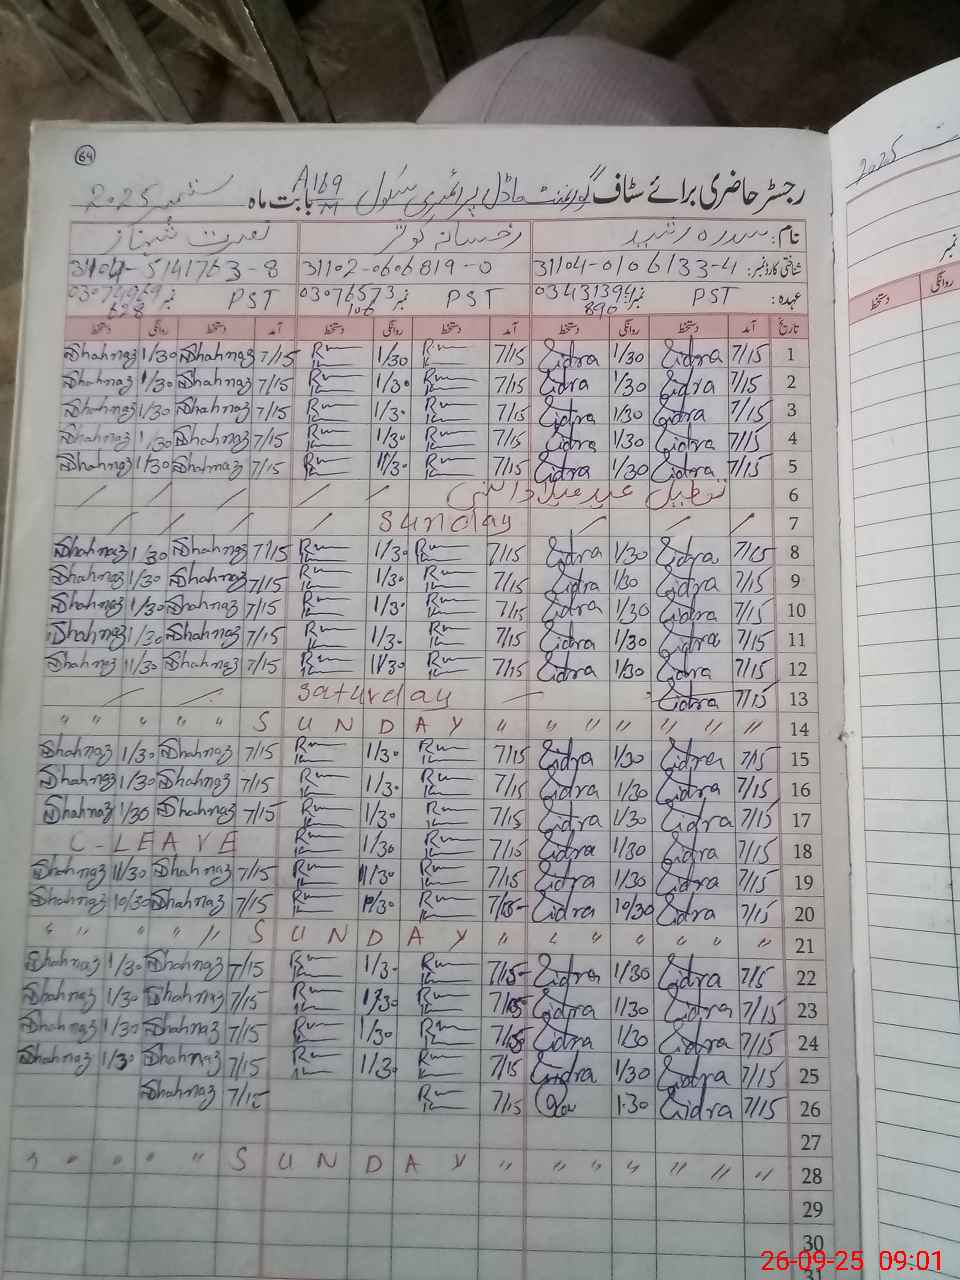 64
رجسٹر حاضری برائے سٹاف گورنمنٹ ماڈل پرائمری سکول A169/M بابت ماہ ستمبر 2025
2025
نام: سدرہ رشید رخسانہ کوثر نصرت شہناز
شناختی کارڈ نمبر: 31104-0106133-4 31102-0606819-0 31104-5141763-8
عہدہ: PST نمبر PST نمبر PST نمبر
تاریخ آمد دستخط روانگی دستخط آمد دستخط روانگی دستخط آمد دستخط روانگی دستخط
نمبر
دستخط روانگی
1 7/15 Sidra 1/30 Sidra 7/15 1/30 7/15 Shahnaz 1/30 Shahnaz
2 7/15 Sidra 1/30 Sidra 7/15 1/30 7/15 Shahnaz 1/30 Shahnaz
3 7/15 Sidra 1/30 Sidra 7/15 1/30 7/15 Shahnaz 1/30 Shahnaz
4 7/15 Sidra 1/30 Sidra 7/15 1/30 7/15 Shahnaz 1/30 Shahnaz
5 7/15 Sidra 1/30 Sidra 7/15 11/30 7/15 Shahnaz 1/30 Shahnaz
6 تعطیل عید میلاد النبی
7 Sunday
8 7/15 Sidra 1/30 Sidra 7/15 1/30 7/15 Shahnaz 1/30 Shahnaz
9 7/15 Sidra 1/30 Sidra 7/15 1/30 7/15 Shahnaz 1/30 Shahnaz
10 7/15 Sidra 1/30 Sidra 7/15 1/30 7/15 Shahnaz 1/30 Shahnaz
11 7/15 Sidra 1/30 Sidra 7/15 1/30 7/15 Shahnaz 1/30 Shahnaz
12 7/15 Sidra 1/30 Sidra 7/15 11/30 7/15 Shahnaz 11/30 Shahnaz
13 7/15 Sidra Saturday
14 " " " " " " " SUNDAY " " " " "
15 7/15 Sidra 1/30 Sidra 7/15 1/30 7/15 Shahnaz 1/30 Shahnaz
16 7/15 Sidra 1/30 Sidra 7/15 1/30 7/15 Shahnaz 1/30 Shahnaz
17 7/15 Sidra 1/30 Sidra 7/15 1/30 7/15 Shahnaz 1/30 Shahnaz
18 7/15 Sidra 1/30 Sidra 7/15 1/30 C-LEAVE
19 7/15 Sidra 1/30 Sidra 7/15 11/30 7/15 Shahnaz 11/30 Shahnaz
20 7/15 Sidra 10/30 Sidra 7/15 10/30 7/15 Shahnaz 10/30 Shahnaz
21 " " " " " " SUNDAY " " " "
22 7/15 Sidra 1/30 Sidra 7/15 1/30 7/15 Shahnaz 1/30 Shahnaz
23 7/15 Sidra 1/30 Sidra 7/15 1/30 7/15 Shahnaz 1/30 Shahnaz
24 7/15 Sidra 1/30 Sidra 7/15 1/30 7/15 Shahnaz 1/30 Shahnaz
25 7/15 Sidra 1/30 Sidra 7/15 1/30 7/15 Shahnaz 1/30 Shahnaz
26 7/15 Sidra 1.30 7/15 7/15 Shahnaz
27
28 " " " " " " SUNDAY " " " " "
29
30
31
26-09-25 09:01